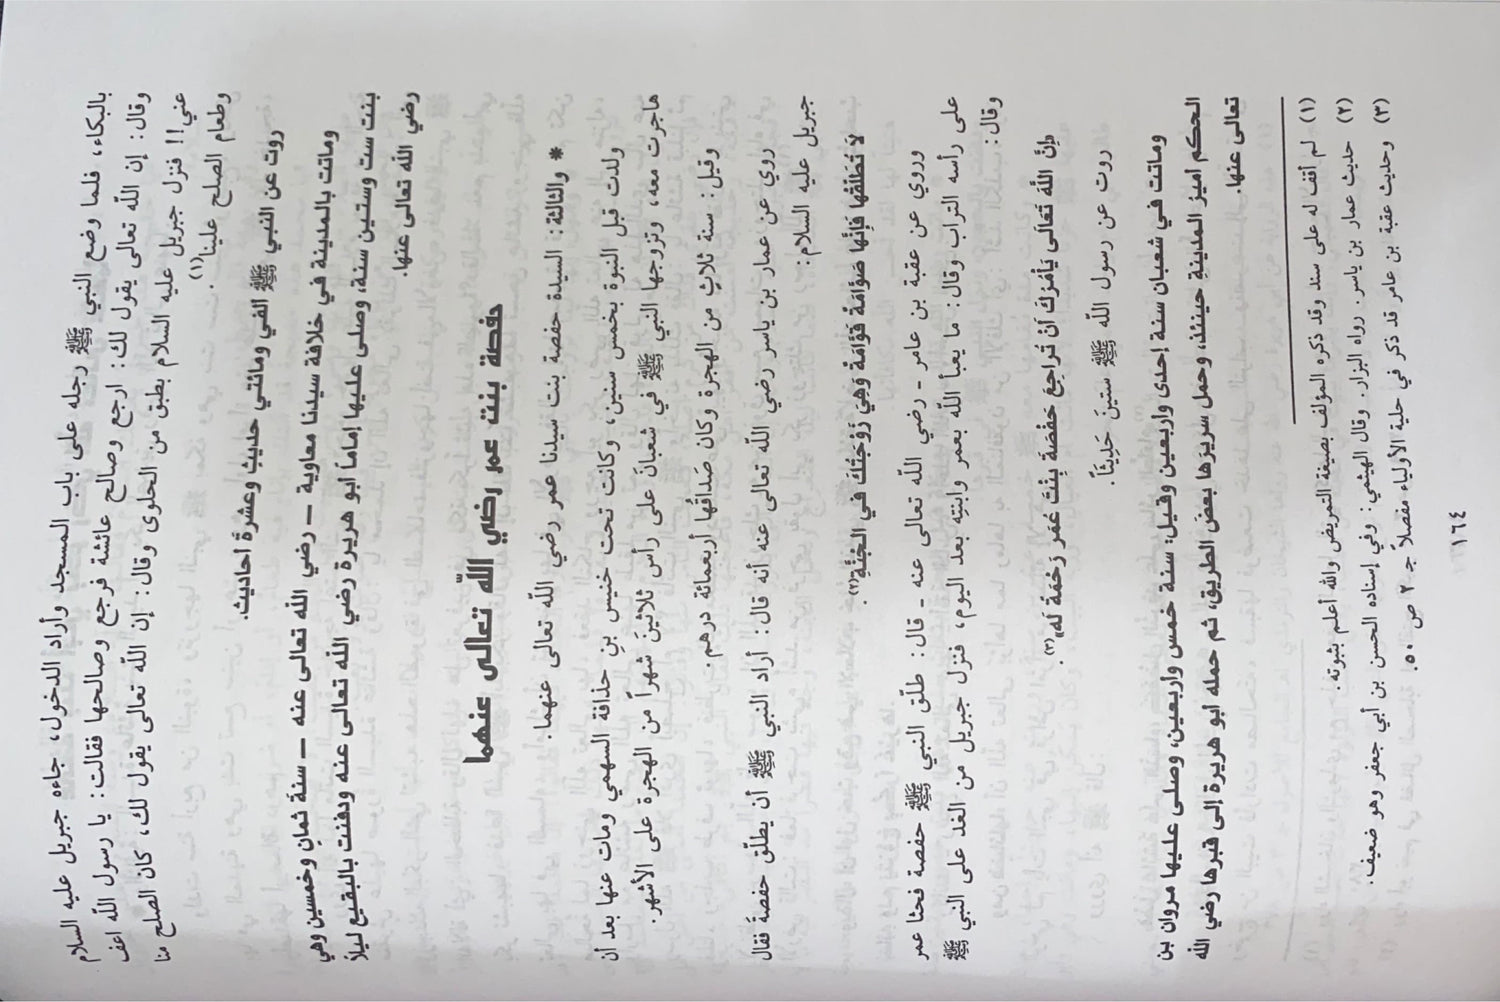 بالبكاء، فلما وضع النبي ﷺ رجله على باب المسجد وأراد الدخول، جاءه جبريل عليه السلام
وقال: إن الله تعالى يقول لك: ارجع وصالح عائشة فرجع وصالحها فقالت: يا رسول الله اعف
عني!! فنزل جبريل عليه السلام بطبق من الحلوى وقال: إن الله تعالى يقول لك، كان الصلح منا
وطعام الصلح علينا(١).
روت عن النبي ﷺ ألفي ومائتي حديثٍ وعشرةَ أحاديث.
وماتت بالمدينة في خلافة سيدنا معاوية ـ رضي الله تعالى عنه ـ سنةَ ثمانٍ وخمسين وهي
بنت ست وستين سنة، وصلى عليها إماماً أبو هريرة رضي الله تعالى عنه ودفنت بالبقيع ليلاً
رضي الله تعالى عنها.
حفصة بنت عمر رضي الله تعالى عنهما
* والثالثة: السيدة حفصة بنت سيدنا عمر رضي الله تعالى عنهما.
ولدت قبل النبوة بخمس سنين، وكانت تحت خنيس بنِ حذافة السهمي ومات عنها بعد أن
هاجرت معه، وتزوجها النبي ﷺ في شعبانَ على رأس ثلاثينَ شهراً من الهجرة على الأشهر.
وقيل: سنة ثلاثٍ من الهجرة وكان صَداقُها أربعمائة درهم.
روي عن عمار بن ياسر رضي الله تعالى عنه أنه قال: أراد النبي ﷺ أن يطلّق حفصةَ فقال
جبريل عليه السلام:
لاَ تُطَلِّقْها فَإِنَّها صَوَّامَةٌ قَوَّامَةٌ وَهِيَ زَوْجَتُكَ في الجَنَّةِ(٢).
وروي عن عقبة بن عامر ـ رضي الله تعالى عنه ـ قال: طلّق النبي ﷺ حفصة فحثا عمر
على رأسه التراب وقال: ما يعبأ الله بعمر وابنتِه بعد اليوم، فنزل جبريل من الغد على النبي ﷺ
وقال:
«إنَّ اللهَ تَعَالَى يَأْمُرُكَ أَنْ تُرَاجِعَ حَفْصَةَ بِنْتَ عُمَرَ رَحْمَةً لَه»(٣).
روت عن رسول الله ﷺ ستينَ حَدِيثاً.
وماتت في شعبان سنة إحدى وأربعين وقيل: سنة خمس وأربعين، وصلى عليها مروان بن
الحكم أميرُ المدينةِ حينئذ، وحمل سريرَها بعضَ الطريق، ثم حمله أبو هريرة إلى قبرها رضي الله
تعالى عنها.
(١) لم أقف له على سند وقد ذكره المؤلف بصيغة التمريض والله أعلم بثبوته.
(٢) حديث عمار بن ياسر. رواه البزار. وقال الهيثمي: وفي إسناده الحسن بن أبي جعفر وهو ضعيف.
(٣) وحديث عقبة بن عامر قد ذكر في حلية الأولياء مفصلاً جـ ٢ ص ٥٠.
١٦٤